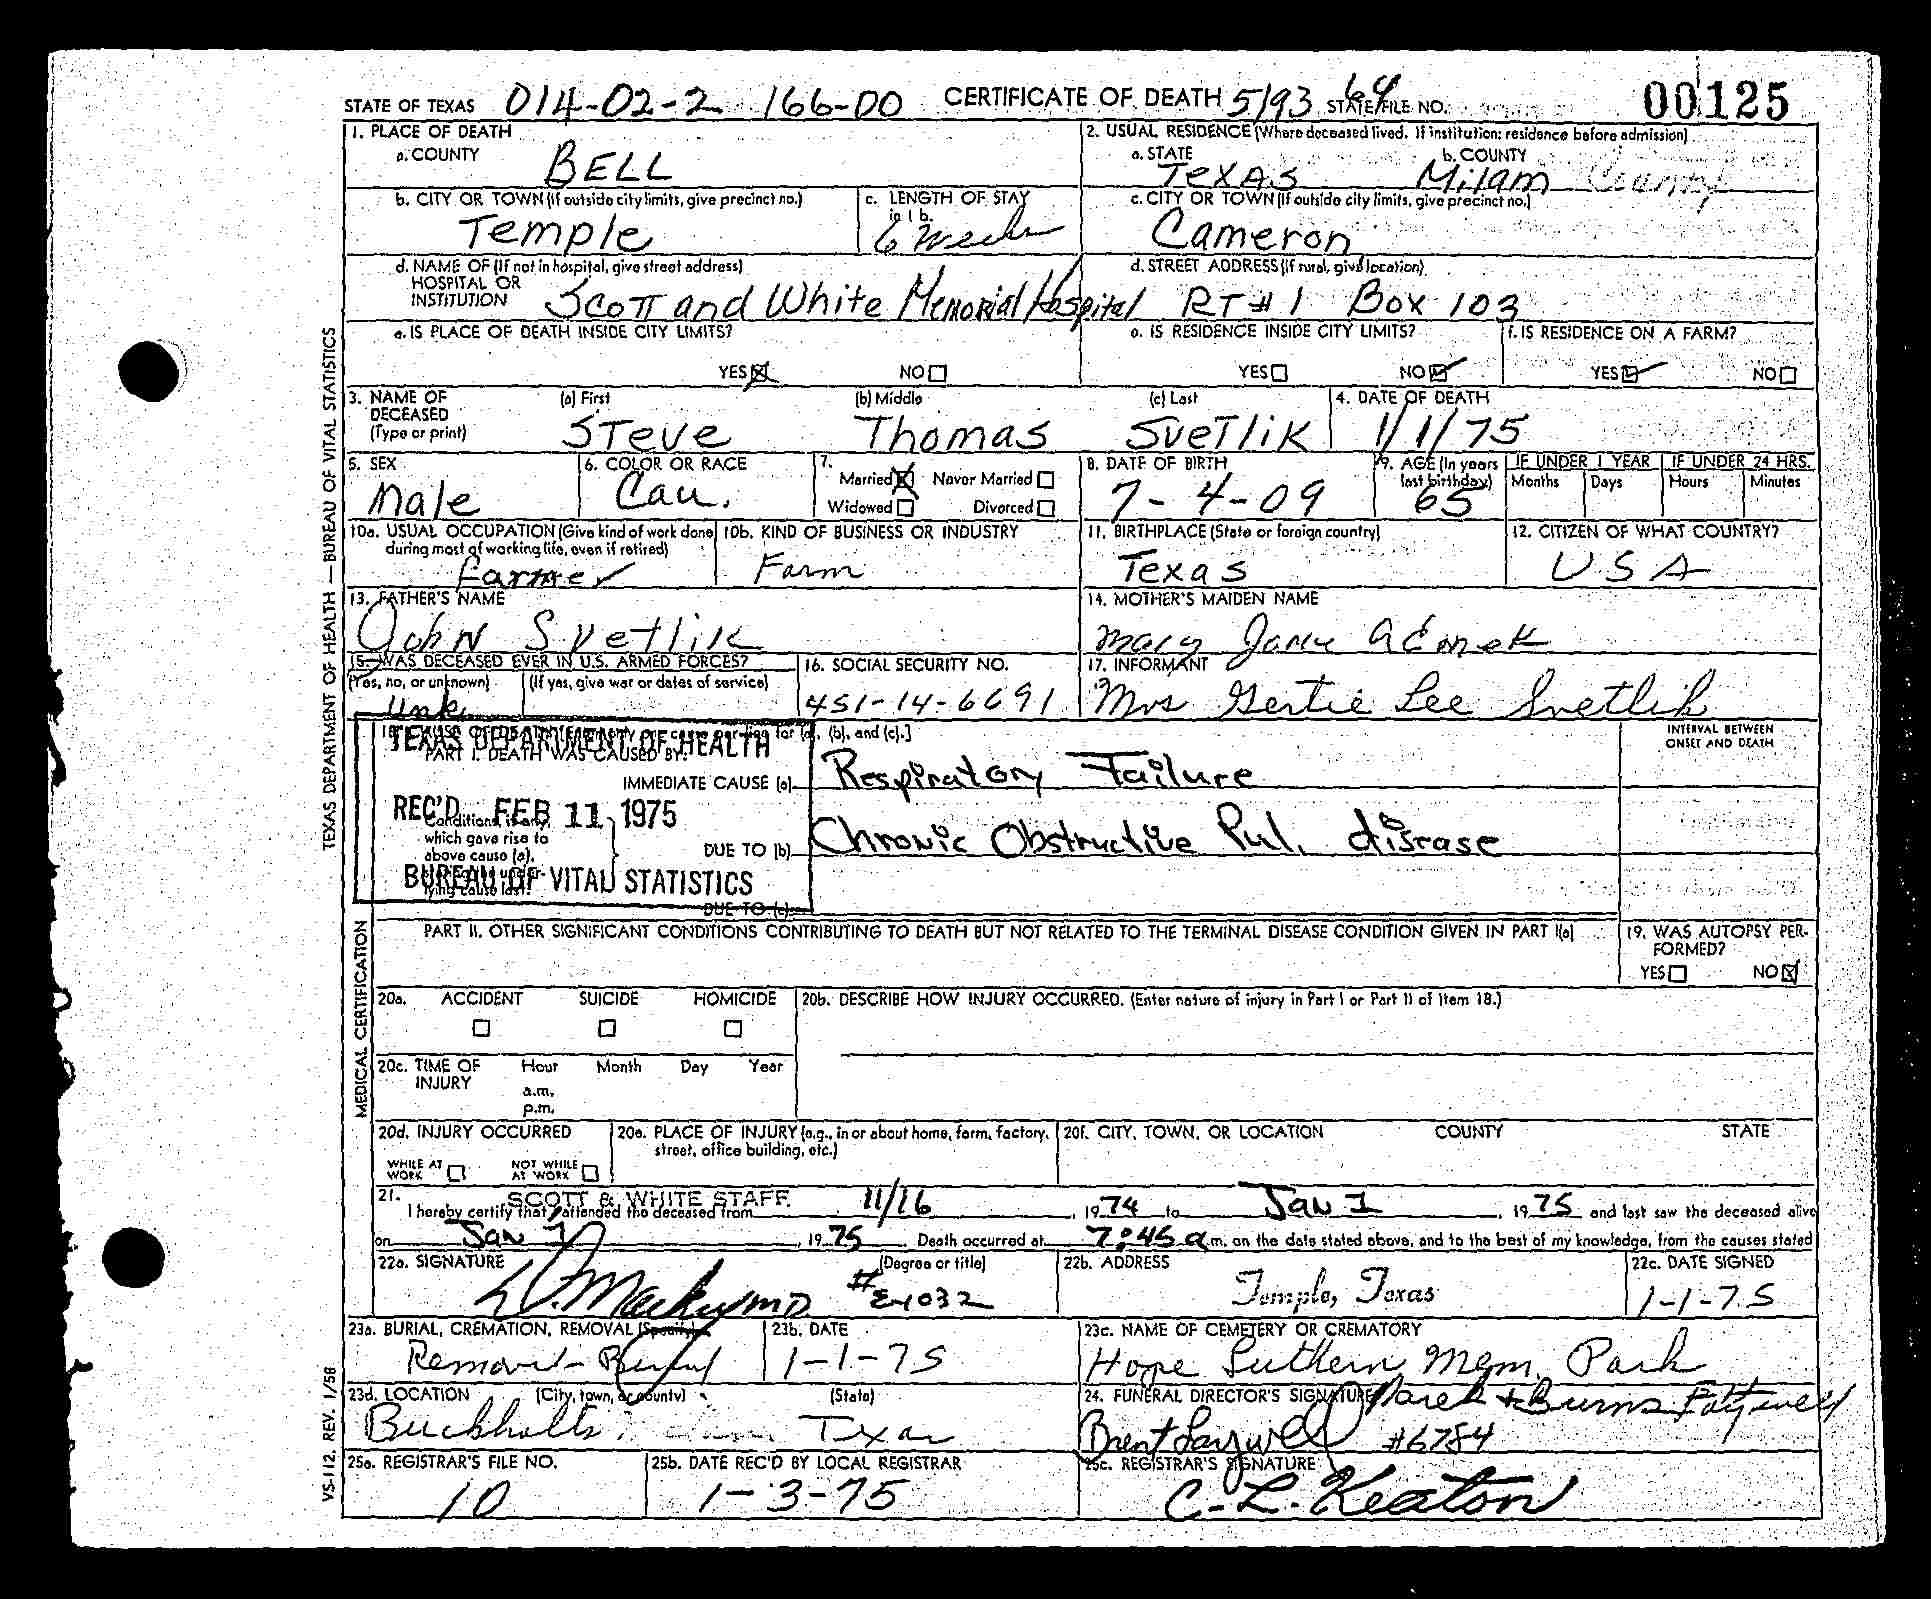 STATE OF TEXAS 014-02-2 166-00 CERTIFICATE OF DEATH 5193 64 STATE FILE NO. 00125
1. PLACE OF DEATH
a. COUNTY BELL
2. USUAL RESIDENCE (Where deceased lived. If institution: residence before admission)
a. STATE Texas b. COUNTY Milam County
b. CITY OR TOWN (If outside city limits, give precinct no.) Temple
c. LENGTH OF STAY in 1 b. 6 weeks
c. CITY OR TOWN (If outside city limits, give precinct no.) Cameron
d. NAME OF (If not in hospital, give street address) HOSPITAL OR INSTITUTION Scott and White Memorial Hospital
d. STREET ADDRESS (If rural, give location) RT #1 Box 103
e. IS PLACE OF DEATH INSIDE CITY LIMITS? YES NO
e. IS RESIDENCE INSIDE CITY LIMITS? YES NO
f. IS RESIDENCE ON A FARM? YES NO
3. NAME OF DECEASED (Type or print) (a) First (b) Middle (c) Last
Steve Thomas Svetlik
4. DATE OF DEATH 1/1/75
5. SEX Male
6. COLOR OR RACE Cau.
7. Married Never Married
Widowed Divorced
8. DATE OF BIRTH 7-4-09
9. AGE (In years last birthday) 65
IF UNDER 1 YEAR Months Days
IF UNDER 24 HRS. Hours Minutes
10a. USUAL OCCUPATION (Give kind of work done during most of working life, even if retired) Farmer
10b. KIND OF BUSINESS OR INDUSTRY Farm
11. BIRTHPLACE (State or foreign country) Texas
12. CITIZEN OF WHAT COUNTRY? USA
13. FATHER'S NAME John Svetlik
14. MOTHER'S MAIDEN NAME Mary Jane
15. WAS DECEASED EVER IN U.S. ARMED FORCES?
(Yes, no, or unknown) (If yes, give war or dates of service)
Unk.
16. SOCIAL SECURITY NO. 451-14-6691
17. INFORMANT Mrs Gertie Lee Svetlik
18. CAUSE OF DEATH [Enter only one cause per line for (a), (b), and (c).]
TEXAS DEPARTMENT OF HEALTH
REC'D FEB 11 1975
BUREAU OF VITAL STATISTICS
INTERVAL BETWEEN ONSET AND DEATH
PART I. DEATH WAS CAUSED BY:
IMMEDIATE CAUSE (a) Respiratory Failure
Conditions, if any, which gave rise to above cause (a), stating the under-lying cause last.
DUE TO (b) Chronic Obstructive Pul. disease
DUE TO (c)
PART II. OTHER SIGNIFICANT CONDITIONS CONTRIBUTING TO DEATH BUT NOT RELATED TO THE TERMINAL DISEASE CONDITION GIVEN IN PART I(a)
19. WAS AUTOPSY PERFORMED? YES NO
20a. ACCIDENT SUICIDE HOMICIDE
20b. DESCRIBE HOW INJURY OCCURRED. (Enter nature of injury in Part I or Part II of Item 18.)
20c. TIME OF INJURY Hour Month Day Year
a.m.
p.m.
20d. INJURY OCCURRED
WHILE AT WORK NOT WHILE AT WORK
20e. PLACE OF INJURY (e.g., in or about home, farm, factory, street, office building, etc.)
20f. CITY, TOWN, OR LOCATION COUNTY STATE
21. SCOTT & WHITE STAFF
I hereby certify that attended the deceased from 11/16, 1974 to Jan 1, 1975 and last saw the deceased alive
on Jan 1, 1975. Death occurred at 7:45 a m. on the date stated above, and to the best of my knowledge, from the causes stated
22a. SIGNATURE (Degree or title) MD #E4032
22b. ADDRESS Temple, Texas
22c. DATE SIGNED 1-1-75
23a. BURIAL, CREMATION, REMOVAL (Specify) Removal-Burial
23b. DATE 1-1-75
23c. NAME OF CEMETERY OR CREMATORY Hope Luthern Mem. Park
23d. LOCATION (City, town, or county) (State)
Buckholts Texas
24. FUNERAL DIRECTOR'S SIGNATURE Marek & Burns
Brent #6784
25a. REGISTRAR'S FILE NO. 10
25b. DATE REC'D BY LOCAL REGISTRAR 1-3-75
25c. REGISTRAR'S SIGNATURE C. L. Keaton
TEXAS DEPARTMENT OF HEALTH — BUREAU OF VITAL STATISTICS
MEDICAL CERTIFICATION
VS-112. REV. 1/58